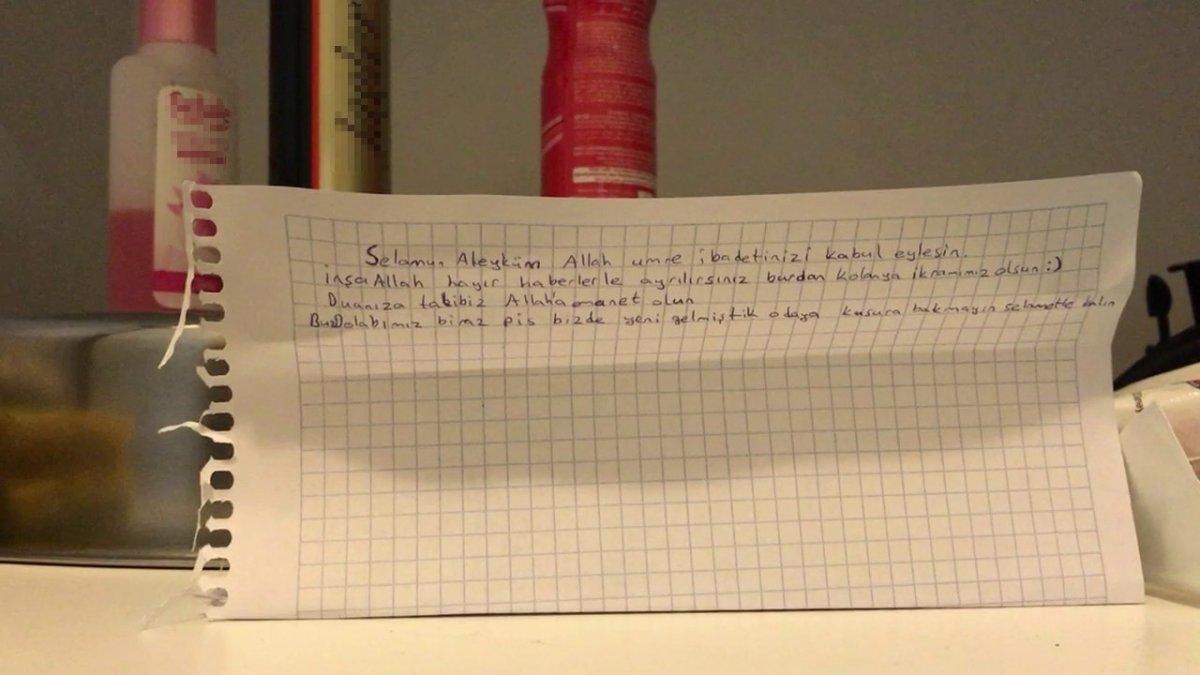 Selamun Aleyküm Allah umre ibadetinizi kabul eylesin.
inşaAllah hayır haberlerle ayrılırsınız burdan kolonya ikramımız olsun :)
Duanıza talibiz Allah'a emanet olun
BuzDolabımız biraz pis bizde yeni gelmiştik odaya kusura bakmayın selametle kalın